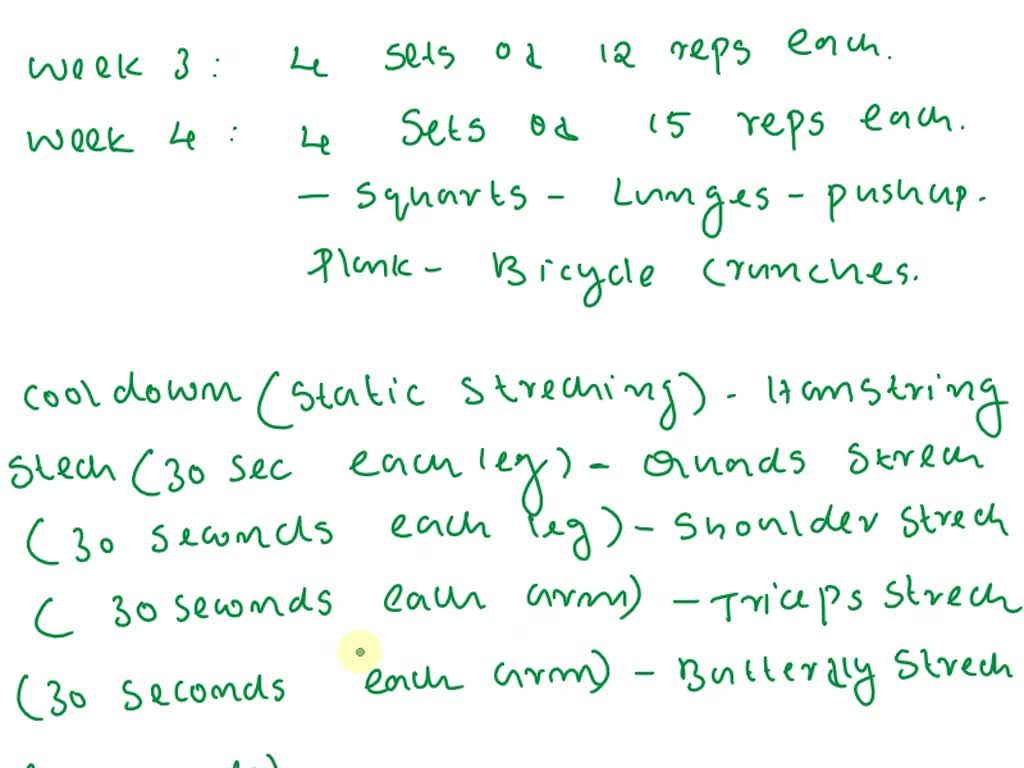 week 3: 4 sets of 12 reps each.
week 4: 4 sets of 15 reps each.
- Squarts - Lunges - pushup.
Plank - Bicycle crunches.
cooldown (static streching). - Hamstring
Stech (30 sec each leg) - Quads strech
(30 seconds each leg) - Shoulder strech
(30 seconds each arm) - Triceps strech
(30 seconds each arm) - Butterfly strech